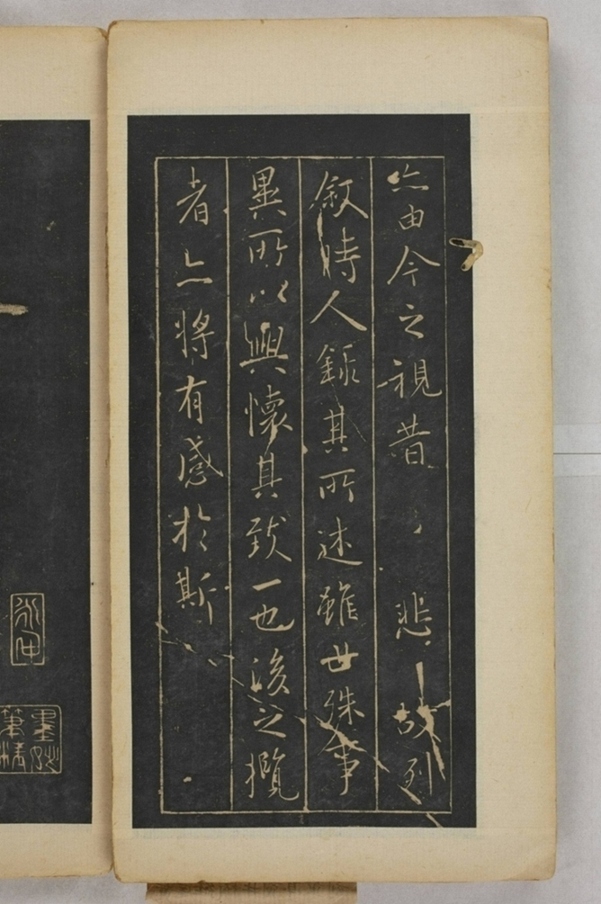 亦由今之視昔悲故列
敘時人錄其所述雖世殊事
異所以興懷其致一也後之攬
者亦將有感於斯
永仲
墨妙
筆精